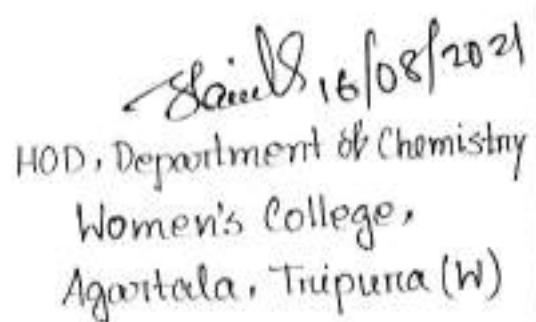 16/08/2021
HOD, Department of Chemistry
Women's College,
Agartala, Tripura (W)